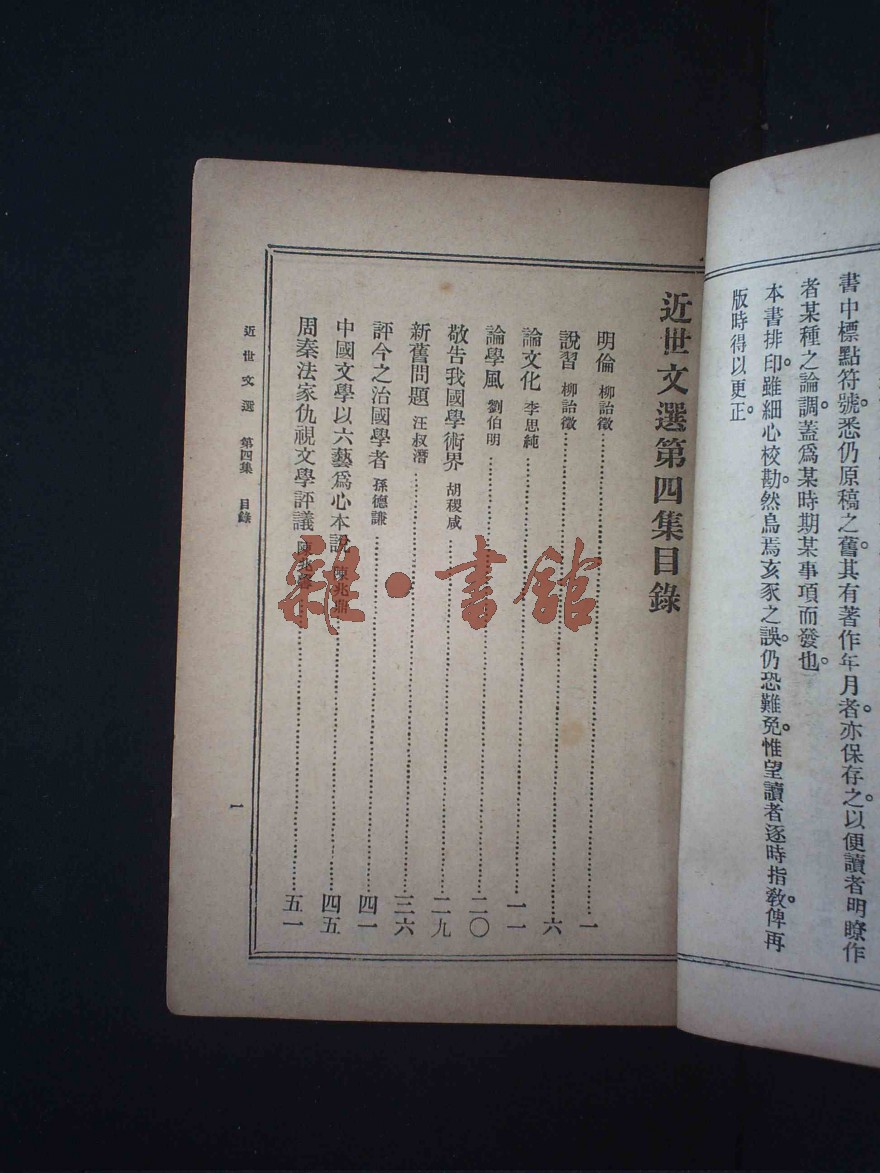 書中標點符號。悉仍原稿之舊。其有著作年月者。亦保存之。以便讀者明瞭作
者某種之論調。蓋爲某時期某事項而發也。
本書排印。雖細心校勘。然烏焉亥豕之誤。仍恐難免。惟望讀者逐時指敎。俾再
版時得以更正。
近世文選第四集目錄
明倫 柳詒徵 一
說習 柳詒徵 六
論文化 李思純 一一
論學風 劉伯明 二〇
敬告我國學術界 胡稷咸 二九
新舊問題 汪叔潛 三六
評今之治國學者 孫德謙 四一
中國文學以六藝爲心本說 陳兆鼎 四五
周秦法家仇視文學評議 陳兆 五一
近世文選 第四集 目錄
一
雜·書館